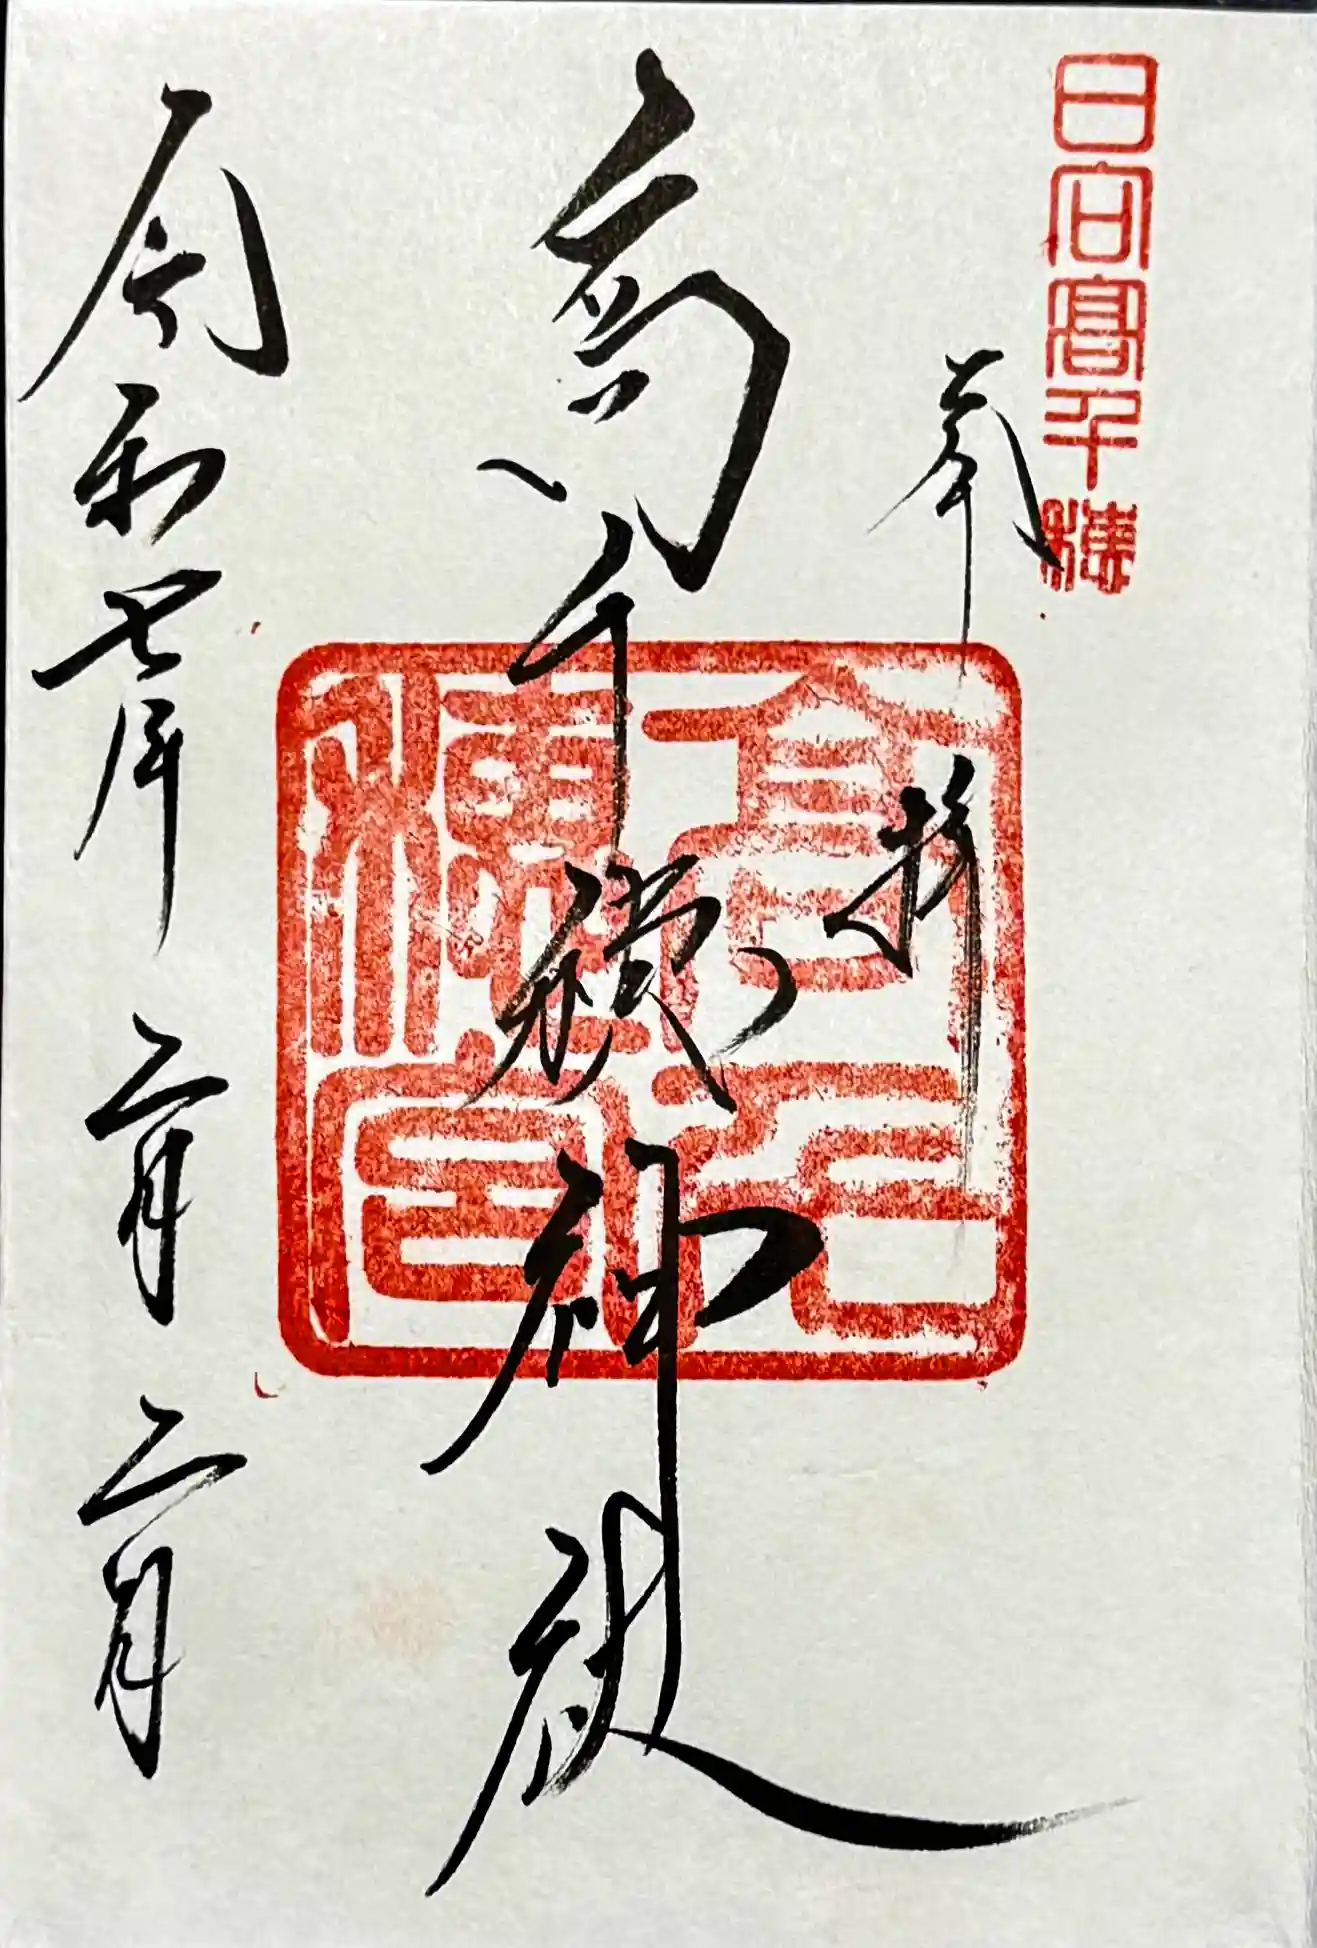 日向高千穂
奉拝
高千穂神社
令和七年二月二日